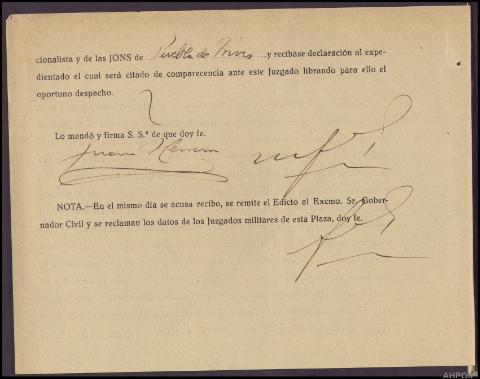 cionalista y de las JONS de Puebla de Trives y recíbase declaración al expe-
dientado el cual será citado de comparecencia ante este Juzgado librando para ello el
oportuno despacho.
Lo mandó y firma S. S.ª de que doy fe.
Juan
NOTA.—En el mismo día se acusa recibo, se remite el Edicto al Excmo. Sr. Gober-
nador Civil y se reclaman los datos de los Juzgados militares de esta Plaza, doy fe.
AHPOU